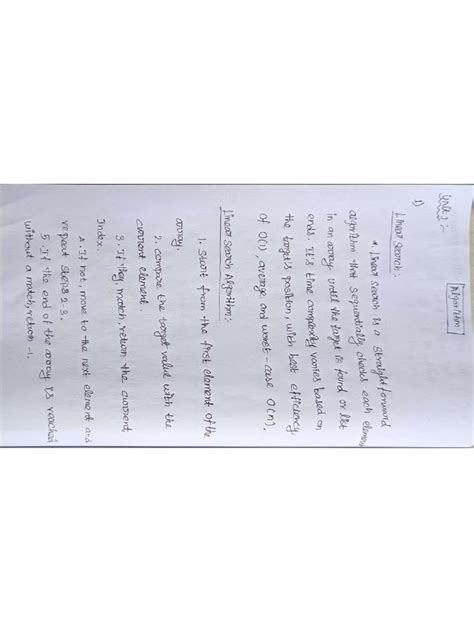 Algorithm
1)
Linear search:
Linear search is a straightforward
algorithm that sequentially checks each elemen
in an array until the target is found or list
ends. It's time complexity varies based on
the target's position, with best efficiency
of O(1), average and worst-case O(n).
Linear Search Algorithm:
1. Start from the first element of the
array.
2. compare the target value with the
current element.
3. If they match, return the current
Index.
4. If not, move to the next element and
repeat steps 2-3.
5. If the end of the array is reached
without a match, return -1.